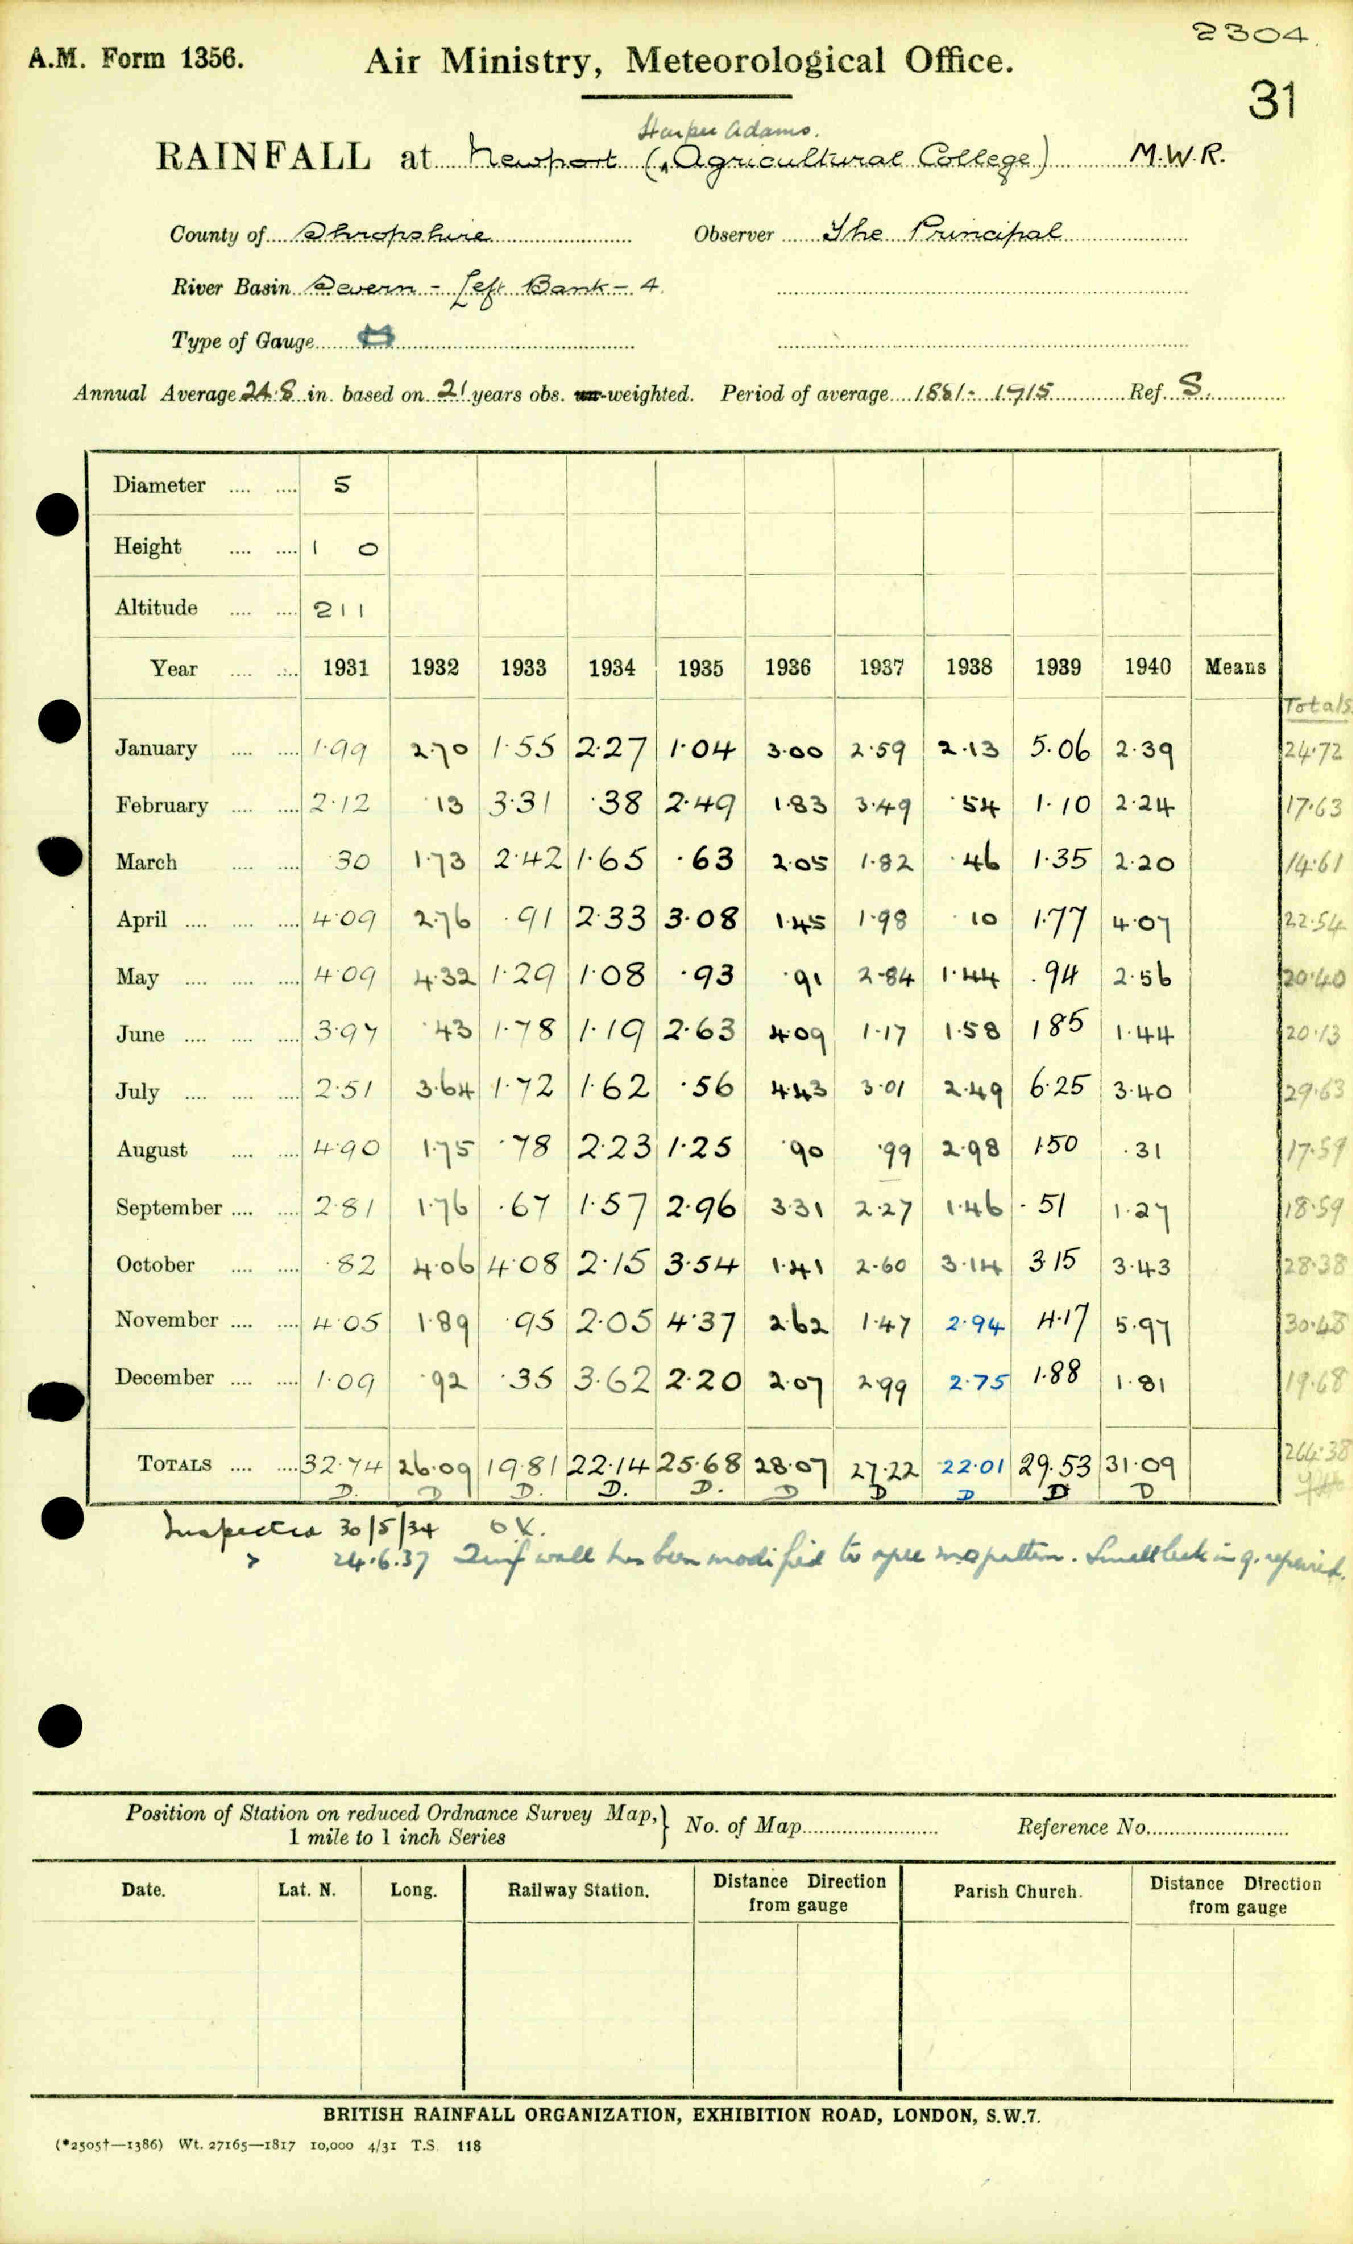 2304
A.M. Form 1356. Air Ministry, Meteorological Office.
31
Harper Adams.
RAINFALL at Newport (Agricultural College) M.W.R.
County of Shropshire Observer The Principal
River Basin Severn - Left Bank - 4
Type of Gauge M
Annual Average 24.8 in. based on 21 years obs. un-weighted. Period of average 1881-1915 Ref. S.
Diameter .... .... 5
Height .... .... 1 0
Altitude .... .... 211
Year .... .... 1931 1932 1933 1934 1935 1936 1937 1938 1939 1940 Means
Totals
January .... .... 1.99 2.70 1.55 2.27 1.04 3.00 2.59 2.13 5.06 2.39 24.72
February .... .... 2.12 .13 3.31 .38 2.49 1.83 3.49 .54 1.10 2.24 17.63
March .... .... .30 1.73 2.42 1.65 .63 2.05 1.82 .46 1.35 2.20 14.61
April .... .... .... 4.09 2.76 .91 2.33 3.08 1.45 1.98 .10 1.77 4.07 22.54
May .... .... .... 4.09 4.32 1.29 1.08 .93 .91 2.84 1.44 .94 2.56 20.40
June .... .... .... 3.97 .43 1.78 1.19 2.63 4.09 1.17 1.58 1.85 1.44 20.13
July .... .... .... 2.51 3.64 1.72 1.62 .56 4.43 3.01 2.49 6.25 3.40 29.63
August .... .... 4.90 1.75 .78 2.23 1.25 .90 .99 2.98 1.50 .31 17.59
September .... .... 2.81 1.76 .67 1.57 2.96 3.31 2.27 1.46 .51 1.27 18.59
October .... .... .82 4.06 4.08 2.15 3.54 1.41 2.60 3.14 3.15 3.43 28.38
November .... .... 4.05 1.89 .95 2.05 4.37 2.62 1.47 2.94 4.17 5.97 30.48
December .... .... 1.09 .92 .35 3.62 2.20 2.07 2.99 2.75 1.88 1.81 19.68
TOTALS .... .... 32.74 26.09 19.81 22.14 25.68 28.07 27.22 22.01 29.53 31.09 264.38
D. D D. D. D. D D D D D
Inspected 30/5/34 OK.
" 24.6.37 Turf wall has been modified to agree M.O. pattern. Small leak in g. repaired.
Position of Station on reduced Ordnance Survey Map,} No. of Map Reference No.
1 mile to 1 inch Series
Date. Lat. N. Long. Railway Station. Distance Direction from gauge Parish Church. Distance Direction from gauge
BRITISH RAINFALL ORGANIZATION, EXHIBITION ROAD, LONDON, S.W.7.
(*2505†—1386) Wt. 27165—1817 10,000 4/31 T.S. 118